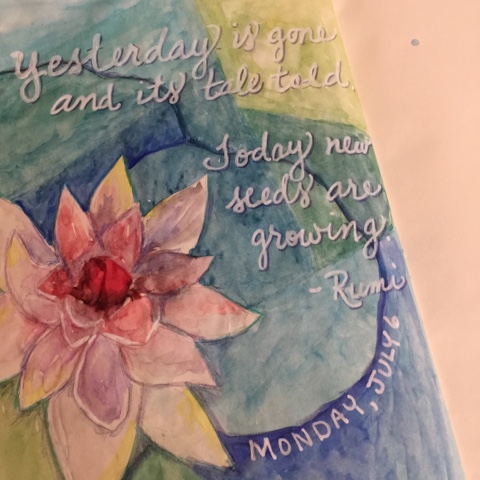 Yesterday is gone
and its tale told.
Today new
seeds are
growing.
-Rumi
MONDAY, JULY 6